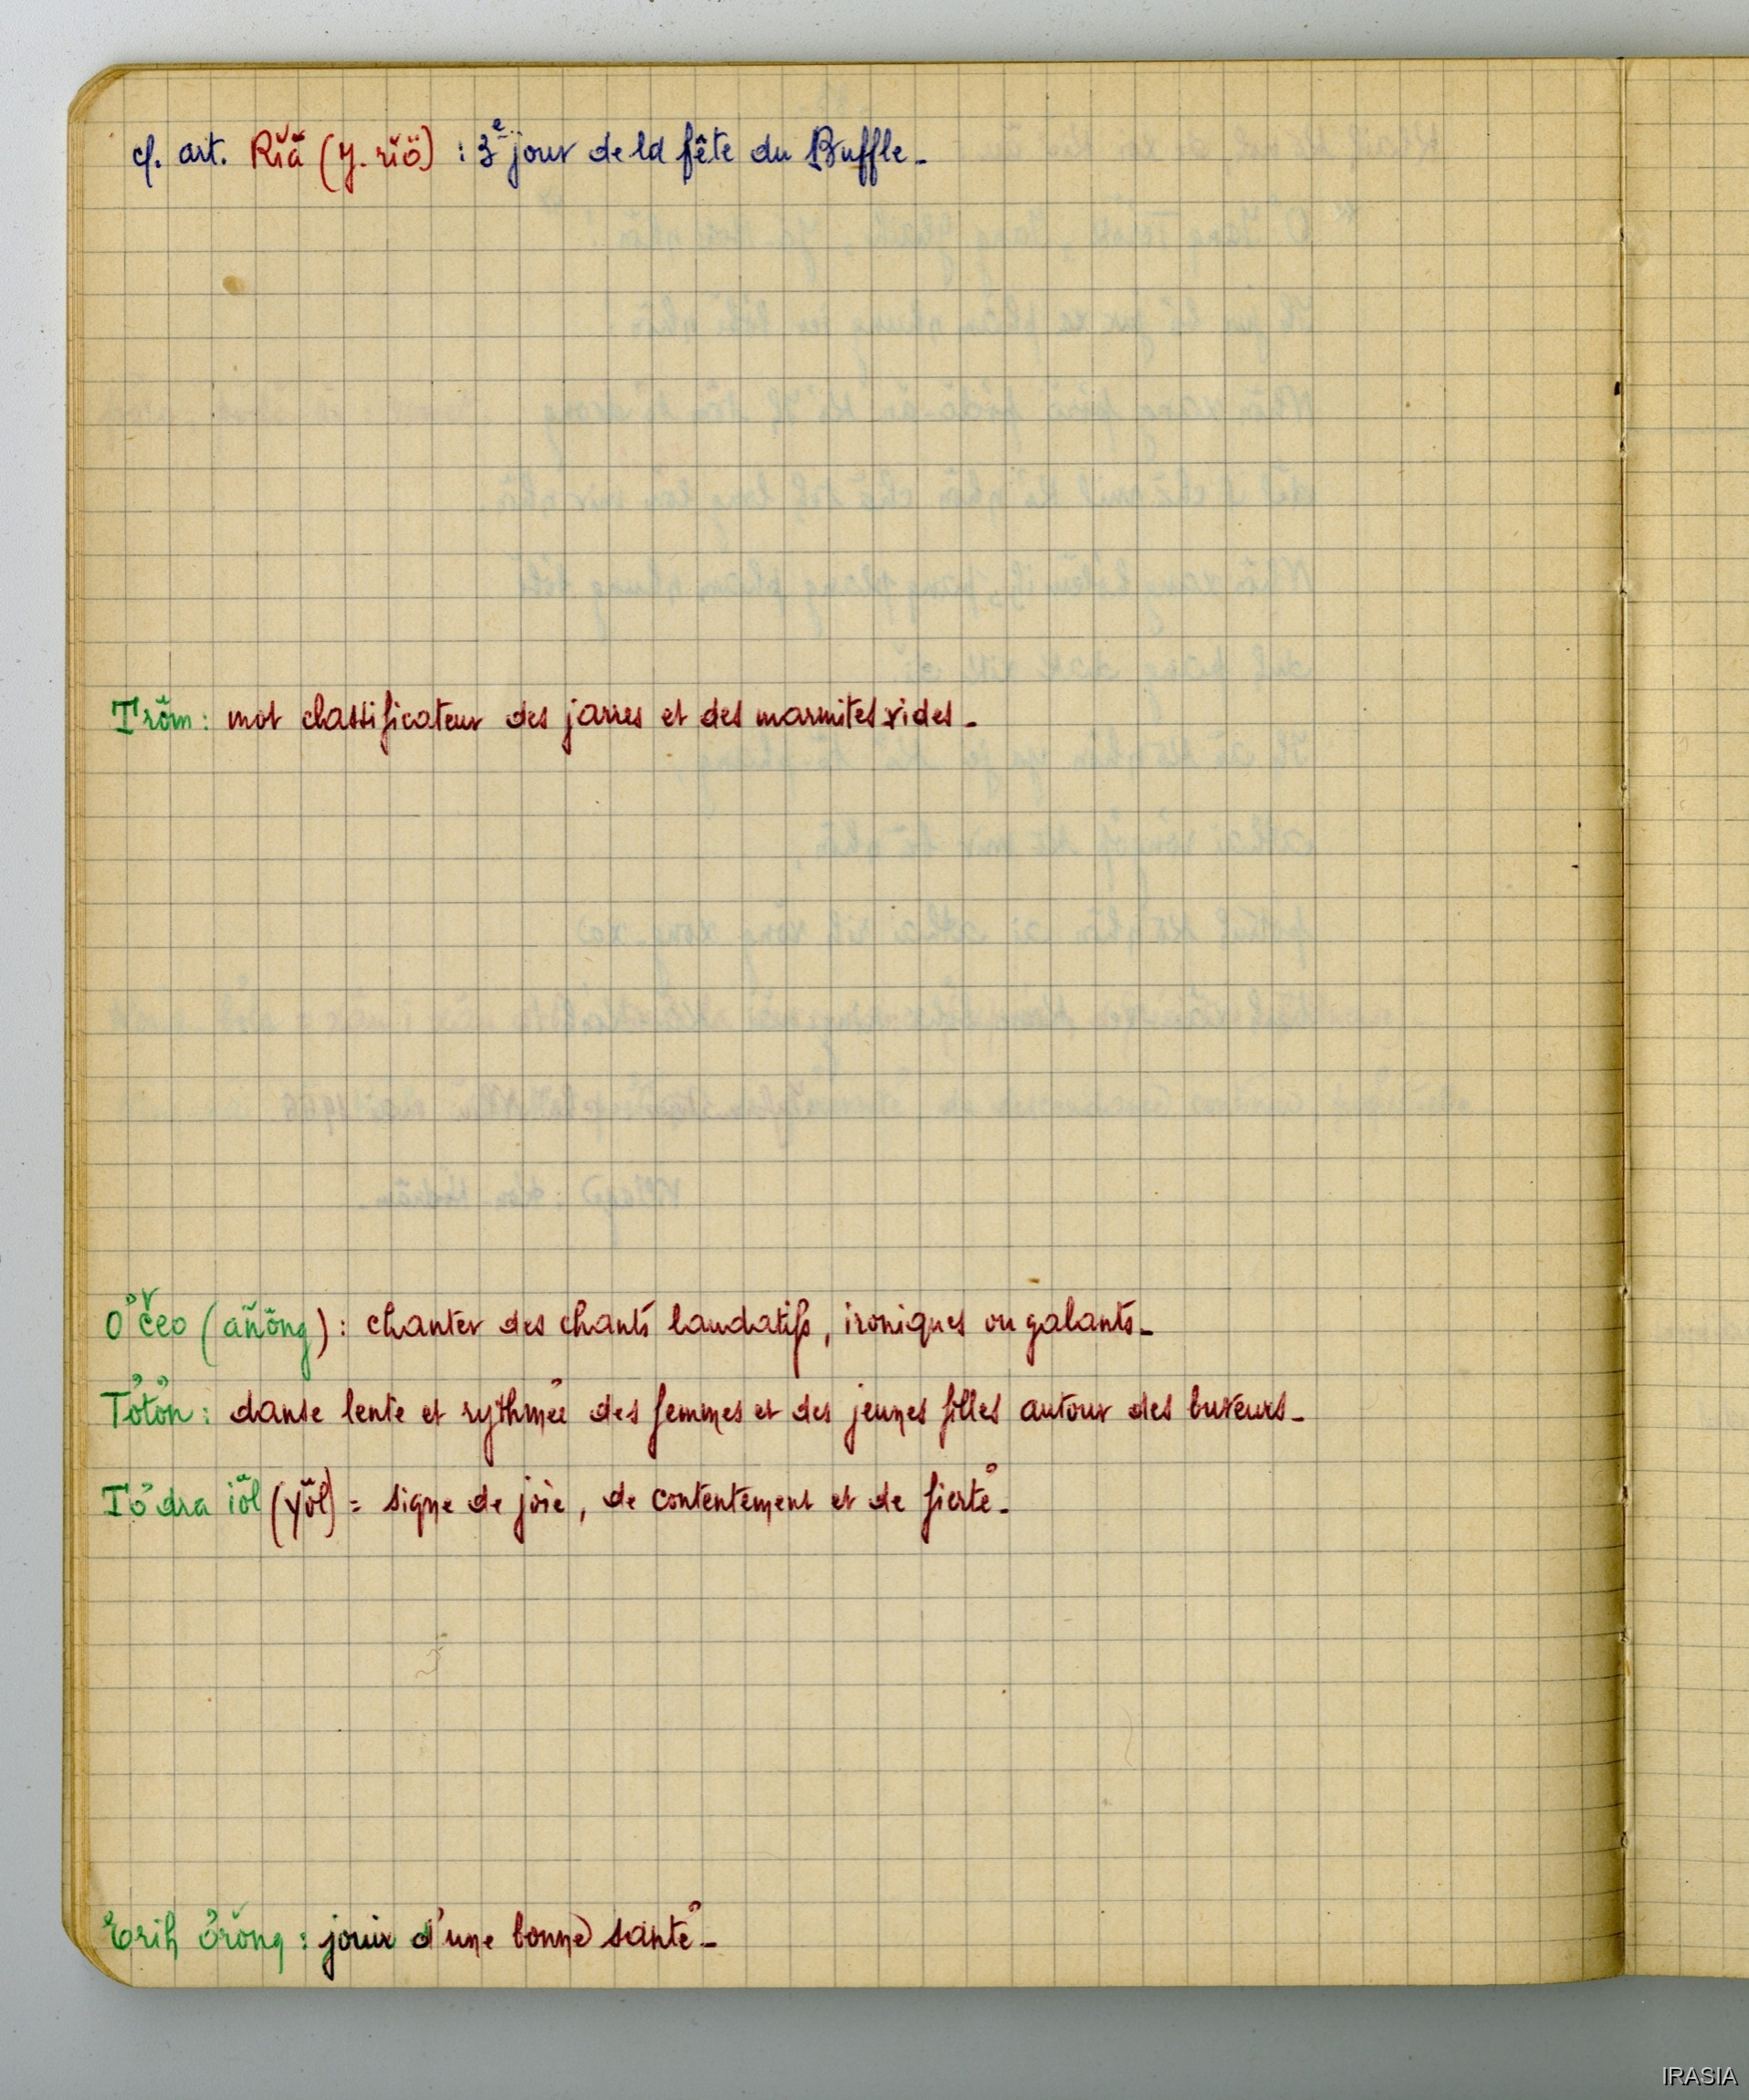 cf. art. Rĭă (y. rĭŏ̈) : 3e jour de la fête du Buffle_
Trŏm : mot classificateur des jarres et des marmites vides_
Ơ čeo (añŏng) : chanter des chants laudatifs, ironiques ou galants_
Tơtơn : danse lente et rythmée des femmes et des jeunes filles autour des buveurs_
Tơdra iŏl (yŏl) = signe de joie, de contentement et de fierté_
Erih ơrŏng : jouir d'une bonne santé_
IRASIA